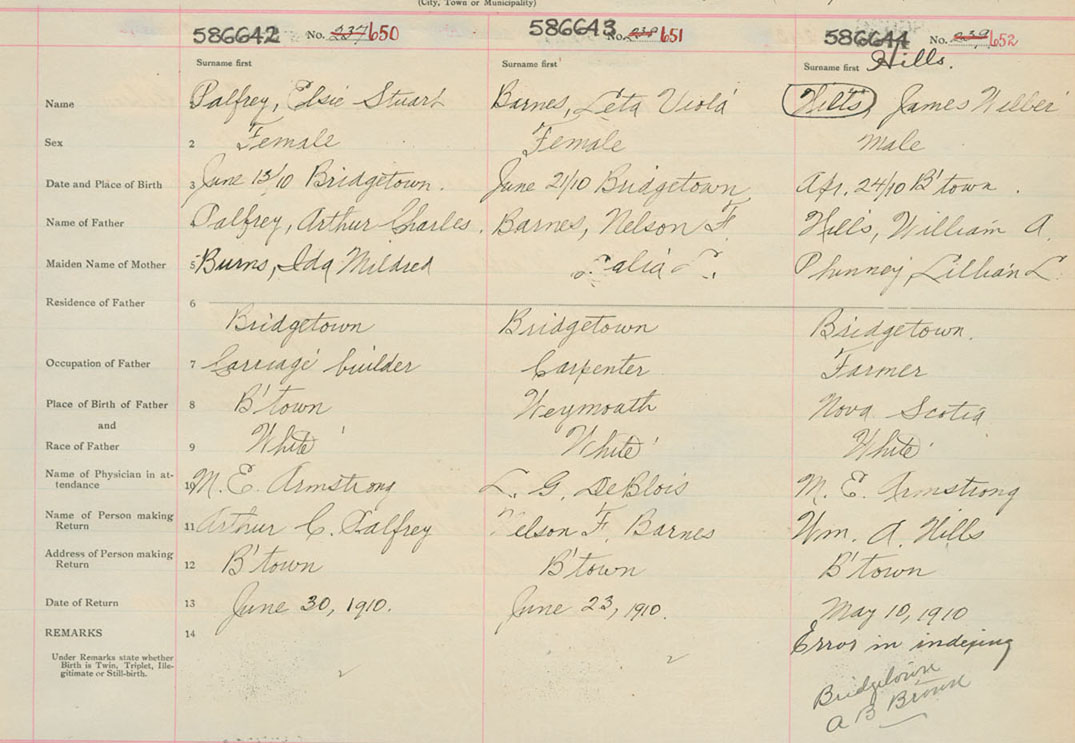 (City, Town or Municipality)
586642 No. 237 650 586643 No. 238 651 586644 No. 239 652
Surname first Surname first Surname first Hills.
Name Palfrey, Elsie Stuart Barnes, Leta Viola Hilts, James Wilber
Sex 2 Female Female Male
Date and Place of Birth 3 June 13/10 Bridgetown. June 21/10 Bridgetown Apr. 24/10 B'town.
Name of Father Palfrey, Arthur Charles. Barnes, Nelson F. Hills, William A.
Maiden Name of Mother 5 Burns, Ida Mildred Phinney, Lillian L.
Residence of Father 6
Bridgetown Bridgetown Bridgetown.
Occupation of Father 7 Carriage builder Carpenter Farmer
Place of Birth of Father 8 B'town Weymouth Nova Scotia
and
Race of Father 9 White White White
Name of Physician in at-
tendance 10 M. E. Armstrong L. G. DeBlois M. E. Armstrong
Name of Person making
Return 11 Arthur C. Palfrey Nelson F. Barnes Wm. A. Hills
Address of Person making
Return 12 B'town B'town B'town
Date of Return 13 June 30, 1910. June 23, 1910. May 10, 1910
REMARKS 14 Error in indexing
Under Remarks state whether
Birth is Twin, Triplet, Ille-
gitimate or Still-birth.
Bridgetown
A B Brown